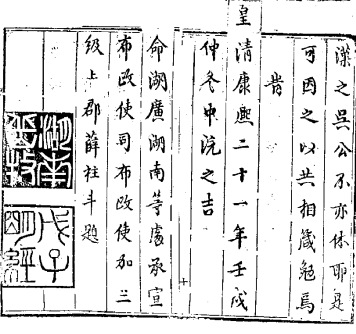 漢之吳公不亦休耶是
可因之以共相箴勉焉
皆
皇清康熙二十一年壬戌
仲冬中浣之吉
命湖廣湖南等處承宣
布政使司布政使加三
級上郡薛柱斗題
湖南
戊子明經